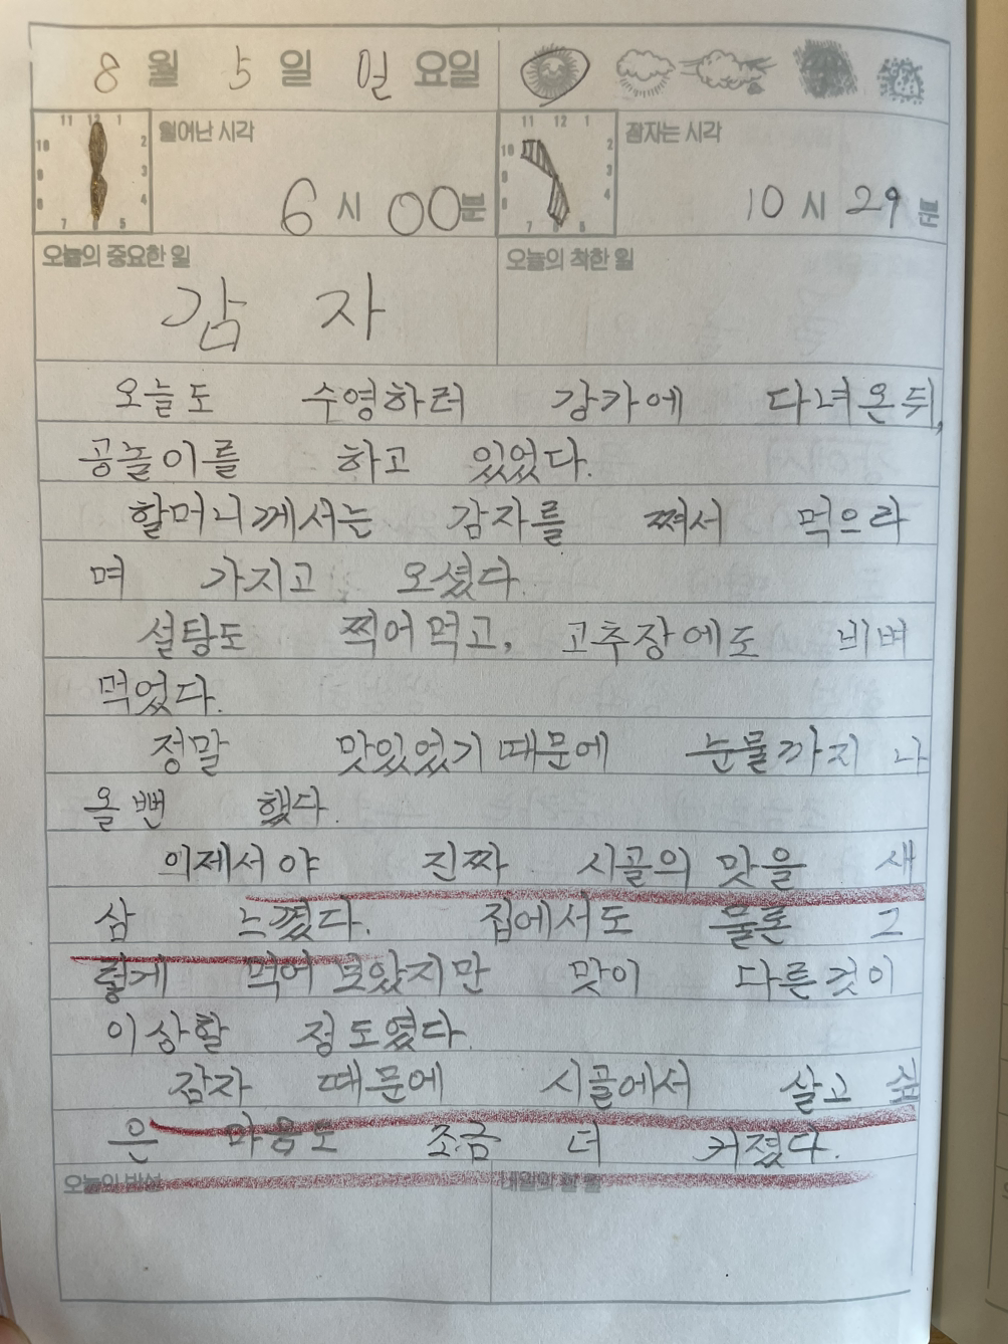 8 월 5 일 일 요일
11 12 1 2 3 4 5 6 7 8 9 10
일어난 시각
6 시 00 분
11 12 1 2 3 4 5 6 7 8 9 10
잠자는 시각
10 시 29 분
오늘의 중요한 일
오늘의 착한 일
감 자
오늘도 수영하러 강가에 다녀온뒤,
공놀이를 하고 있었다.
할머니께서는 감자를 쪄서 먹으라
며 가지고 오셨다.
설탕도 찍어먹고, 고추장에도 비벼
먹었다.
정말 맛있었기때문에 눈물까지 나
올뻔 했다.
이제서야 진짜 시골의 맛을 새
삼 느꼈다. 집에서도 물론 그
렇게 먹어보았지만 맛이 다른것이
이상할 정도였다.
감자 때문에 시골에서 살고 싶
은 마음도 조금 더 커졌다.
오늘의 반성
내일의 할 일